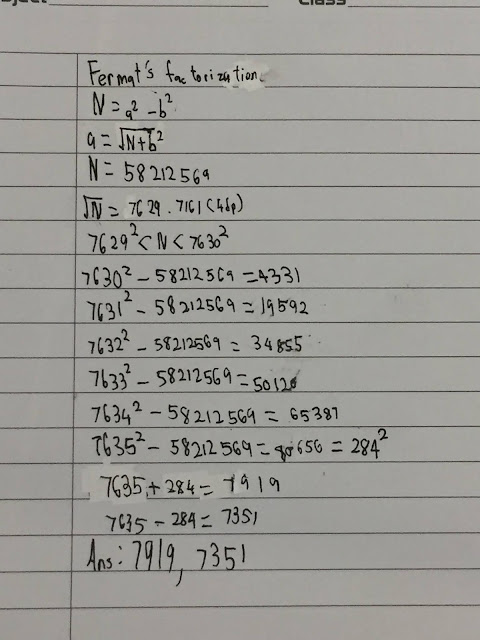 Class
Fermat's factorization.
N = a² - b²
a = √N+b²
N = 58212569
√N = 7629.7161 (4dp)
7629² < N < 7630²
7630² - 58212569 = 4331
7631² - 58212569 = 19592
7632² - 58212569 = 34855
7633² - 58212569 = 50120
7634² - 58212569 = 65387
7635² - 58212569 = 80656 = 284²
7635 + 284 = 7919
7635 - 284 = 7351
Ans: 7919, 7351